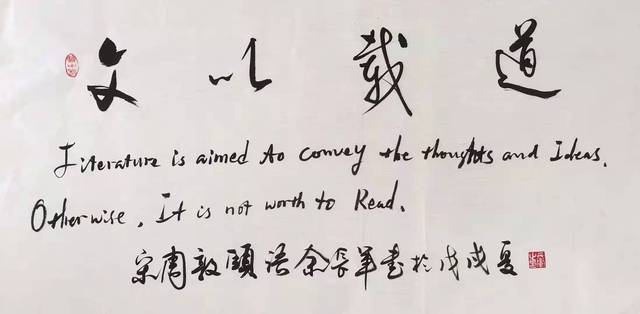 文以载道
Literature is aimed to convey the thoughts and Ideas.
Otherwise, It is not worth to Read.
宋周敦颐语余长军书于戊戌夏